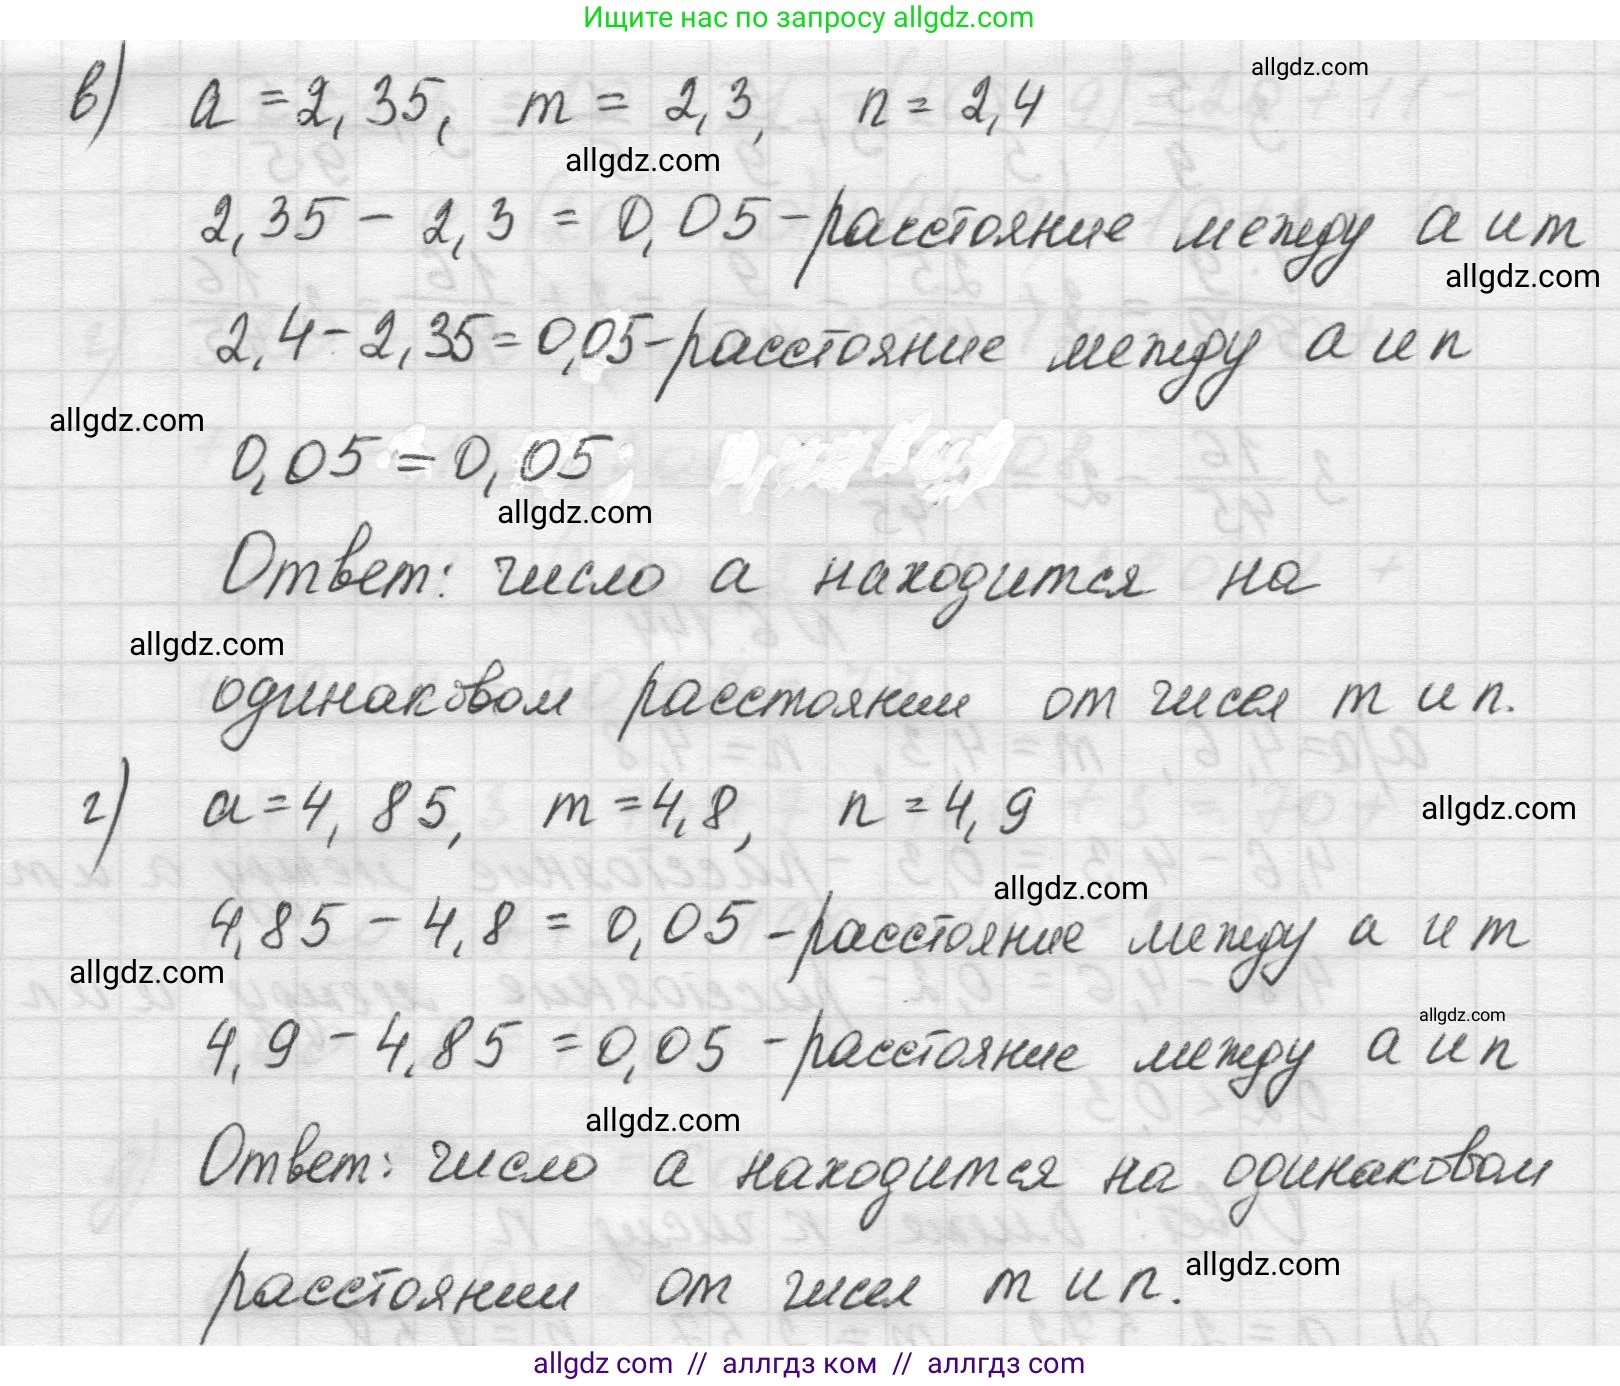 Ищите нас по запросу allgdz.com
allgdz.com
в) a = 2,35, m = 2,3, n = 2,4
allgdz.com
2,35 - 2,3 = 0,05 - расстояние между a и m
allgdz.com
2,4 - 2,35 = 0,05 - расстояние между a и n
allgdz.com
0,05 = 0,05
allgdz.com
Ответ: число a находится на
allgdz.com
одинаковом расстоянии от чисел m и n.
г) a = 4,85, m = 4,8, n = 4,9
allgdz.com
allgdz.com
4,85 - 4,8 = 0,05 - расстояние между a и m
allgdz.com
allgdz.com
4,9 - 4,85 = 0,05 - расстояние между a и n
allgdz.com
Ответ: число a находится на одинаковом
расстоянии от чисел m и n.
allgdz.com
allgdz.com // аллгдз ком // аллгдз.com